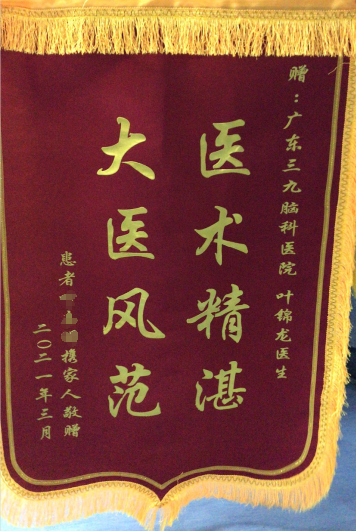 赠：广东三九脑科医院 叶锦龙医生
医术精湛
大医风范
患者 携家人敬赠
二〇二一年三月